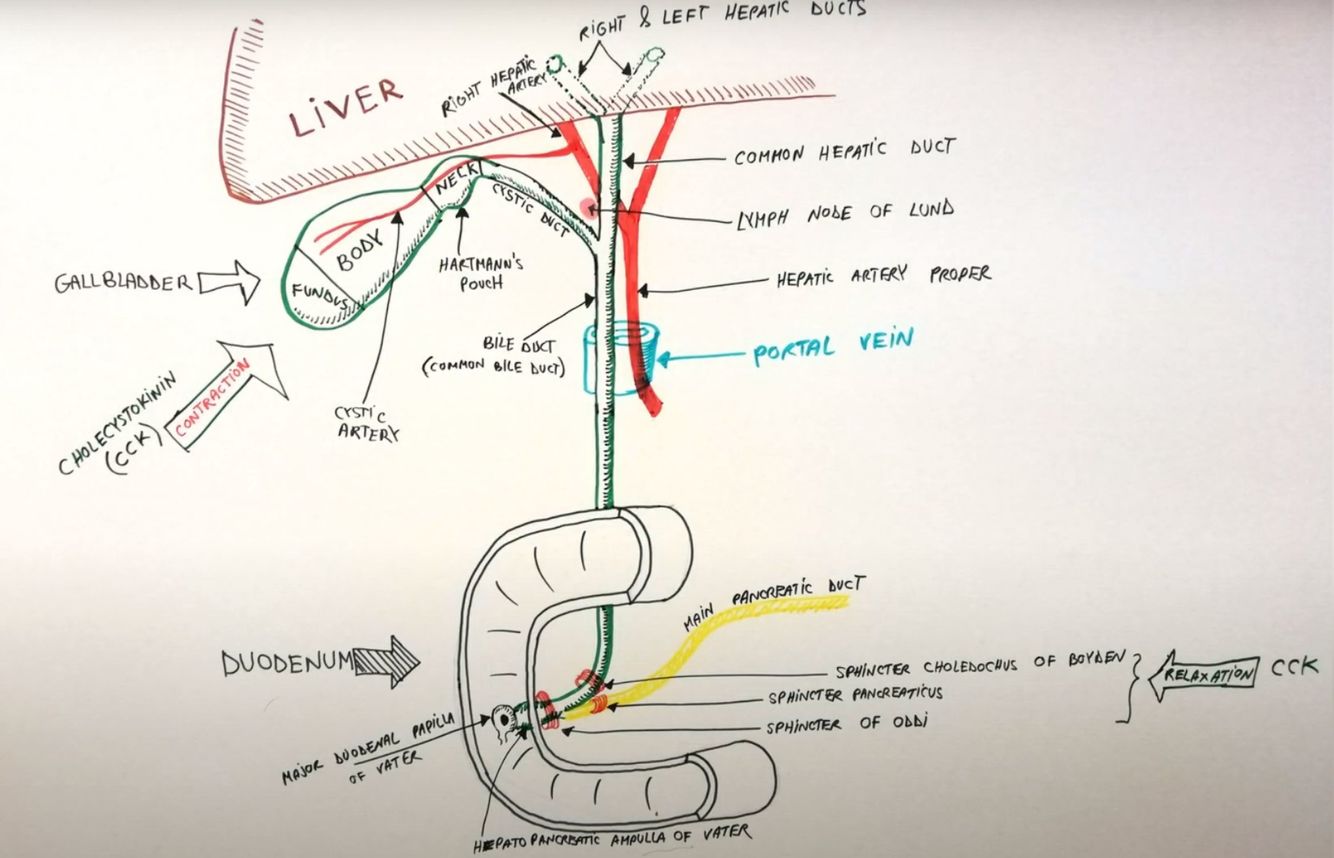 RIGHT & LEFT HEPATIC DUCTS
RIGHT HEPATIC
ARTERY
LIVER
COMMON HEPATIC DUCT
NECK
CYSTIC DUCT
LYMPH NODE OF LUND
BODY
HARTMANN'S
POUCH
GALLBLADDER
FUNDUS
HEPATIC ARTERY PROPER
BILE DUCT
(COMMON BILE DUCT)
PORTAL VEIN
CHOLECYSTOKININ
(CCK)
CONTRACTION
CYSTIC
ARTERY
MAIN PANCREATIC DUCT
DUODENUM
SPHINCTER CHOLEDOCHUS OF BOYDEN
RELAXATION
CCK
SPHINCTER PANCREATICUS
SPHINCTER OF ODDI
MAJOR DUODENAL PAPILLA
OF VATER
HEPATO PANCREATIC AMPULLA OF VATER